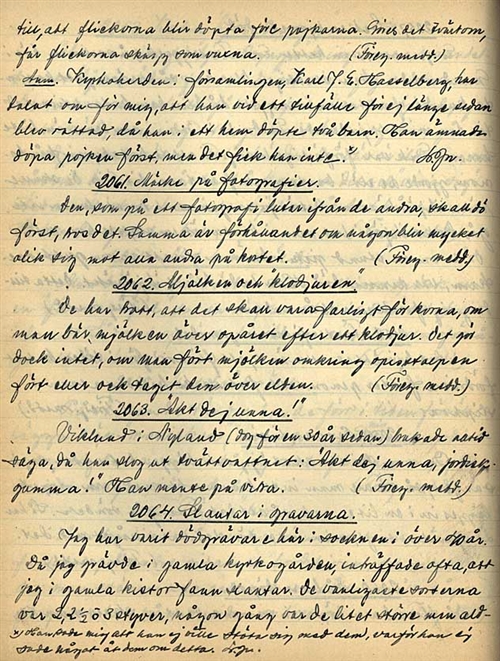 till, att flickorna blir döpta före pojkarna. Göres det tvärtom,
får flickorna skägg som vuxna. (Föreg. medd.)
Anm. Kyrkoherden i församlingen, Karl J. E. Hasselberg, har
talat om för mig, att han vid ett tillfälle för ej länge sedan
blev rättad, då han i ett hem döpte två barn. Han ämnade
döpa pojken först, men det fick han inte.
2061. Märke på fotografier.
Den, som på ett fotografi lutar ifrån de andra, skall dö
först, tros det. Samma är förhållandet om någon blir mycket
olik sig mot alla andra på kortet. (Föreg. medd.)
2062. Mjölken och "klodjuren".
De har trott, att det skall vara farligt för korna, om
man bär mjölken över spåret efter ett klodjur. Det gör
dock intet, om man fört mjölken omkring spisstolpen
fört eller ock tagit den över elden. (Föreg. medd.)
2063. "Akt dej unna!"
Viklund i Nyland (dog för en 30 år sedan) brukade alltid
säga, då han slog ut tvättvattnet: "Akt dej unna, jordisk-
gamma!" Han mente på vitra. (Föreg. medd.)
2064. Slantar i gravarna.
Jag har varit dödgrävare här i socknen i över 40 år.
Då jag grävde i gamla kyrkogården, inträffade ofta, att
jag i gamla kistor fann slantar. De vanligaste sorterna
var 2, 2 ½ o 3 styver, någon gång var de litet större men ald-
x) Han sade mig att han ej ville stöta sig med dem, varför han ej
sade något åt dem om detta.